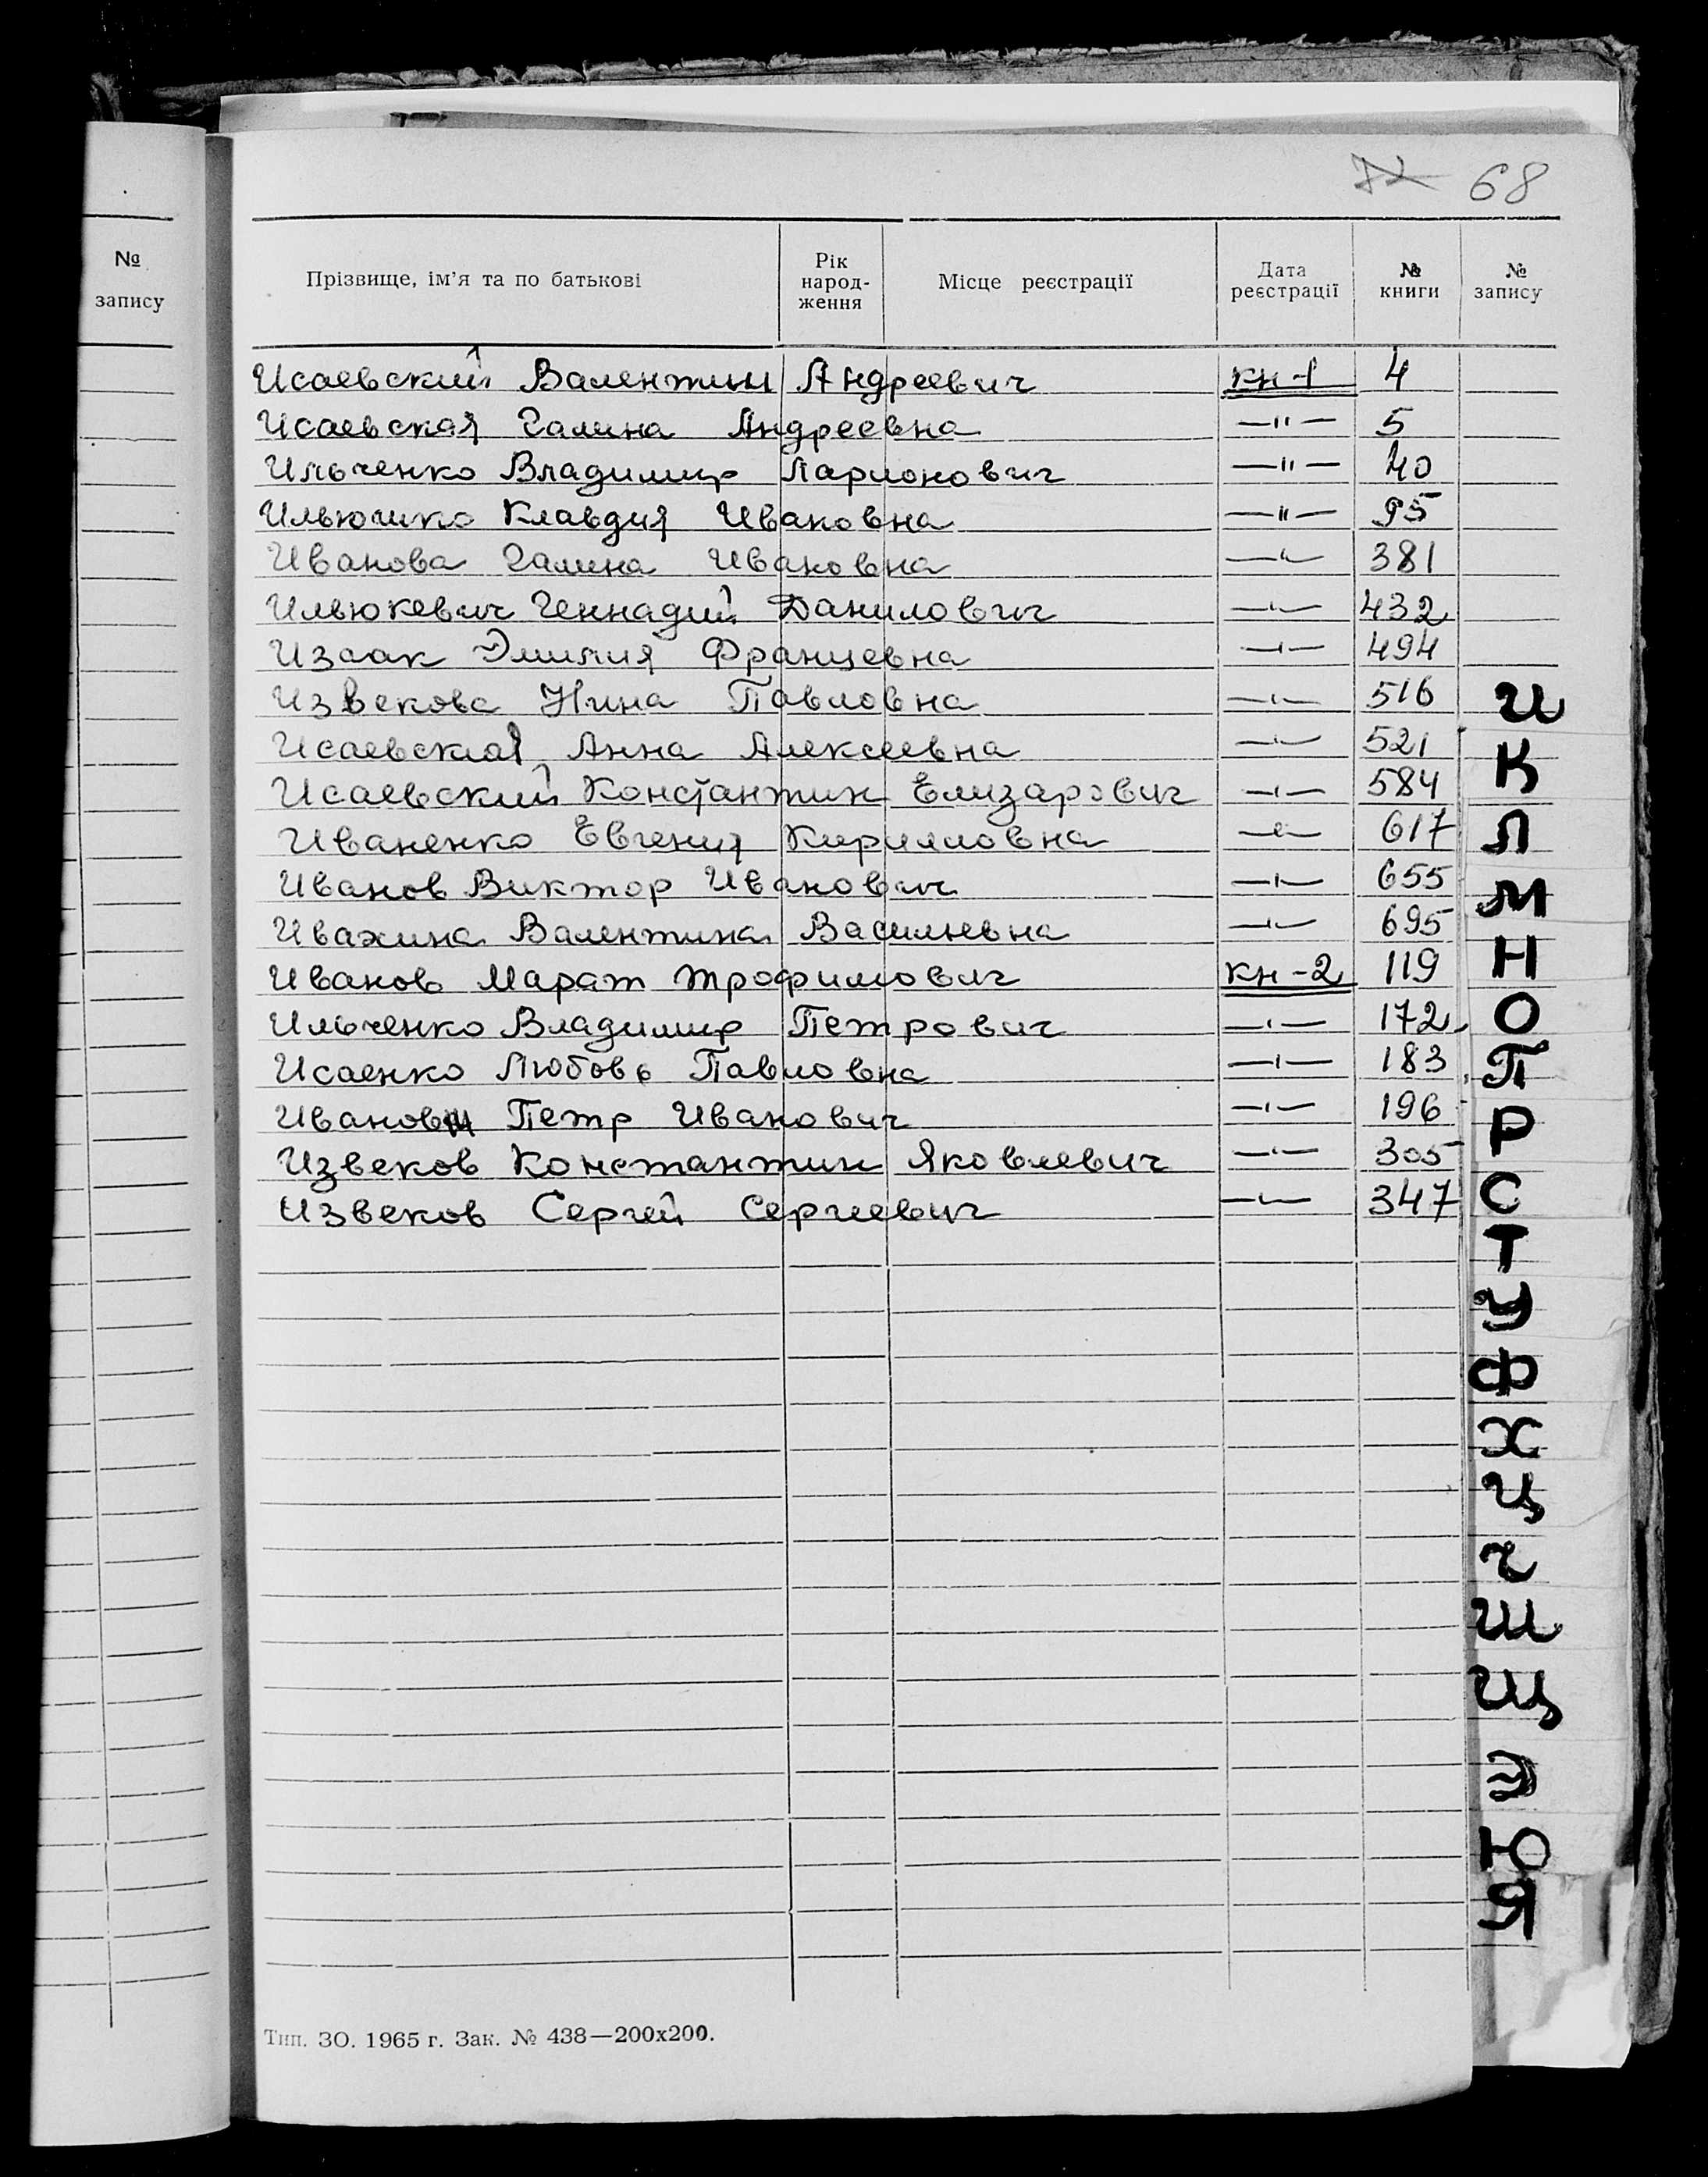 72 68
№ запису
Прізвище, ім'я та по батькові Рік народ-ження Місце реєстрації Дата реєстрації № книги № запису
Исаевский Валентин Андреевич кн-1 4
Исаевская Галина Андреевна —"— 5
Ильченко Владимир Ларионович —"— 40
Ильюшко Клавдия Ивановна —"— 95
Иванова Галина Ивановна —"— 381
Ильюкевич Геннадий Данилович —"— 432
Изаак Эмилия Францевна —"— 494
Извекова Нина Павловна —"— 516
Исаевская Анна Алексеевна —"— 521
Исаевский Константин Елизарович —"— 584
Иваненко Евгения Кирилловна —"— 617
Иванов Виктор Иванович —"— 655
Ивахина Валентина Васильевна —"— 695
Иванов Марат Трофимович кн-2 119
Ильченко Владимир Петрович —"— 172
Исаенко Любовь Павловна —"— 183
Иванов Петр Иванович —"— 196
Извеков Константин Яковлевич —"— 305
Извеков Сергей Сергеевич —"— 347
И
К
Л
М
Н
О
П
Р
С
Т
У
Ф
Х
Ц
Ч
Ш
Щ
Э
Ю
Я
Тип. ЗО. 1965 г. Зак. № 438—200х200.